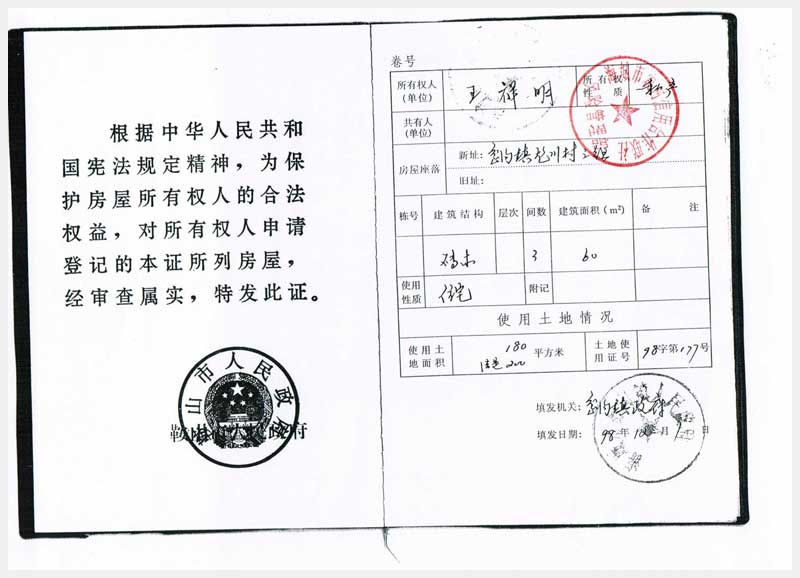 根据中华人民共和
国宪法规定精神，为保
护房屋所有权人的合法
权益，对所有权人申请
登记的本证所列房屋，
经审查属实，特发此证。
鞍山市人民政府
鞍山市人民政府
卷号
所有权人（单位） 王祥明 所有权性质 私产
共有人（单位）
房屋座落 新址：
旧址：
栋号 建筑结构 层次 间数 建筑面积（m²） 备注
砖木 3 60
使用性质 住宅 附记
使用土地情况
使用土地面积 180 平方米 土地使用证号 98字第177号
填发机关：
填发日期： 98年10月 日